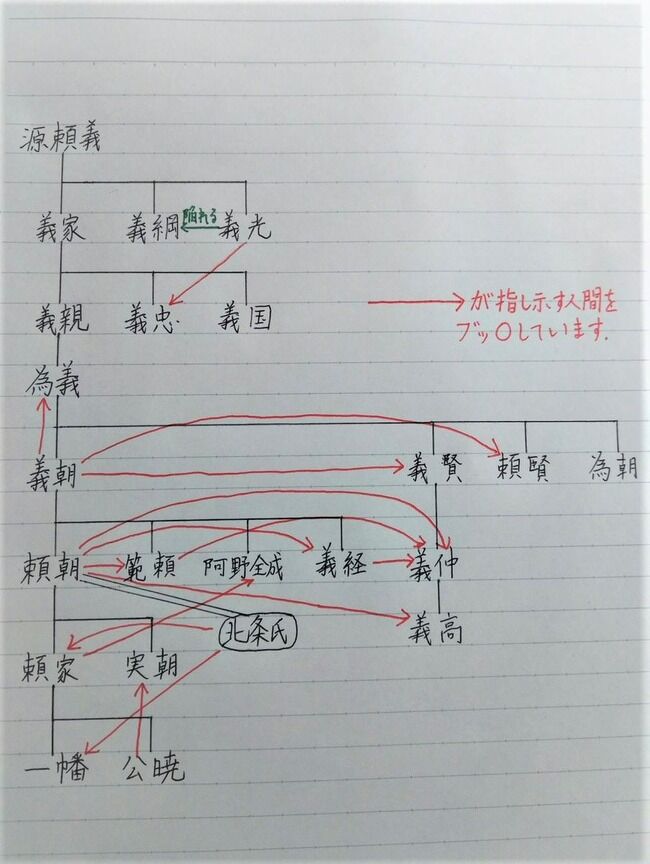 源頼義
義家 義綱 陥れる 義光
義親 義忠 義国
が指し示す人間を
ブッ〇しています.
為義
義朝 義賢 頼賢 為朝
頼朝 範頼 阿野全成 義経 義仲
北条氏 義高
頼家 実朝
一幡 公暁